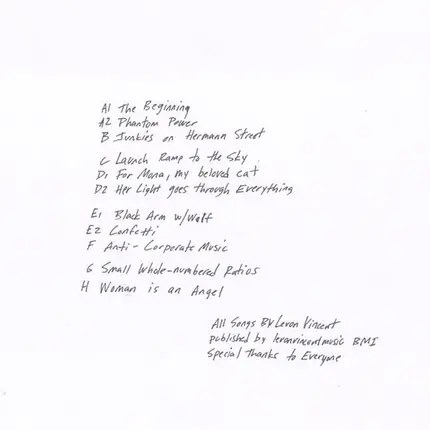 A1 The Beginning
A2 Phantom Power
B Junkies on Hermann Street
C Launch Ramp to the Sky
D1 For Mona, my beloved cat
D2 Her Light goes through Everything
E1 Black Arm w/Wolf
E2 Confetti
F Anti-Corporate Music
G Small Whole-numbered Ratios
H Woman is an Angel
All Songs By Levon Vincent
published by levonvincentmusic BMI
Special thanks to Everyone